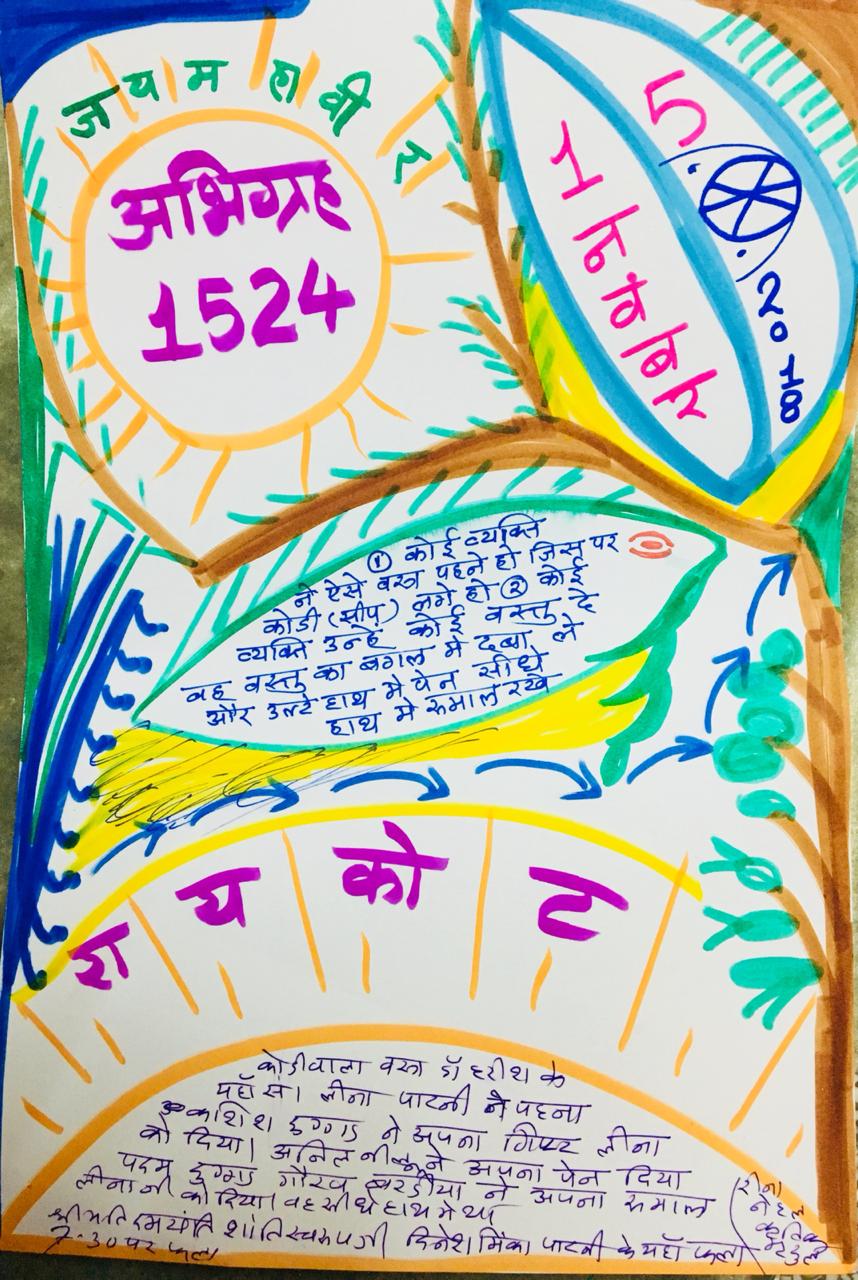 जय महावीर
अभिग्रह
1524
15
नवम्बर
2018
① कोई व्यक्ति
ने ऐसे वस्त्र पहने हो जिस पर
कोडी (सीप) लगे हो ② कोई
व्यक्ति उन्हे कोई वस्तु दे
वह वस्तु का बगल मे दबा ले
और उलटे हाथ मे पेन सीधे
हाथ मे रुमाल रखे
रायकोट
कोडीवाला वस्त्र डॉ हरीश के
यहाँ से। लीना पाटनी ने पहना
कशिश डुग्गड ने अपना गिफ्ट लीना
को दिया। अनिल ने अपना पेन दिया
पदम डुग्गड गौरव बरडीया ने अपना रुमाल
लीना जी को दिया। वह सीधे हाथ मे था
श्रीमति दमयंति शांतिस्वरुपजी दिनेश मिंका पाटनी के यहाँ फला
7.30 पर फला